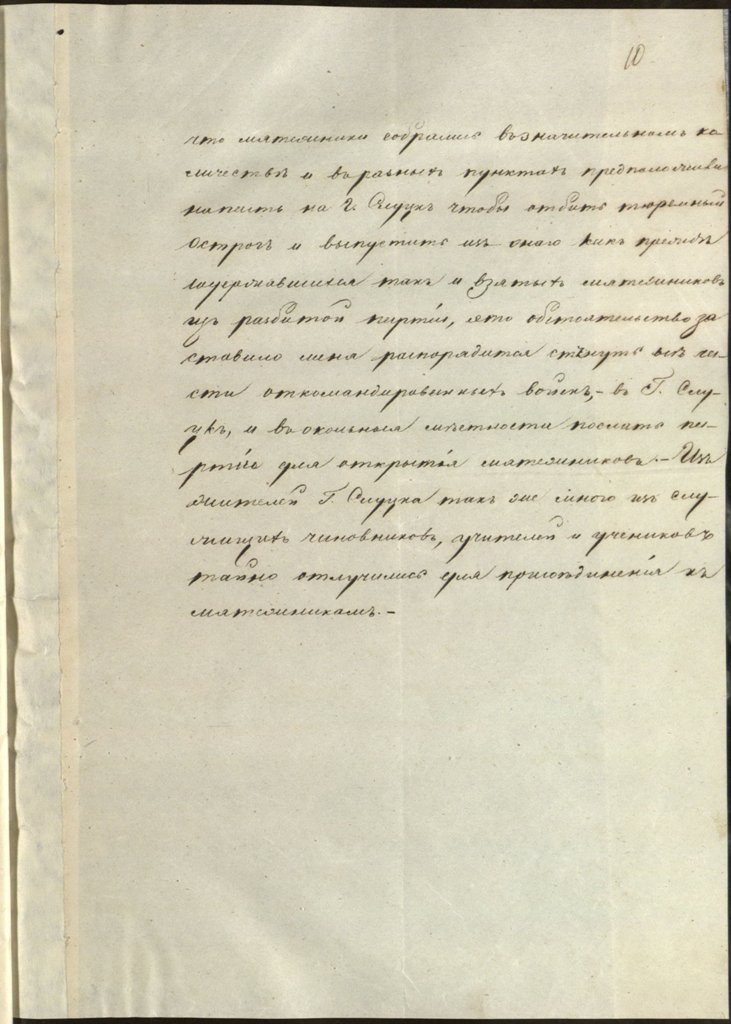 10
что мятежники собрались въ значительномъ ко
личествѣ и въ разныхъ пунктахъ предположили
напасть на г. Слуцкъ чтобы отбить тюремный
острогъ и выпустить изъ онаго какъ прежде
содержавшихся такъ и взятыхъ мятежниковъ
изъ разбитой партіи, это обстоятельство за
ставило меня распорядится стянуть всѣ ча-
сти откомандированныхъ войскъ,- въ Г. Слу-
цкъ, и въ окольныя мѣстности послать па-
ртіи для открытія мятежниковъ.- Изъ
жителей Г. Слуцка такъ же много изъ слу-
жащихъ чиновниковъ, учителей и учениковъ
тайно отлучились для присоѣдиненія къ
мятежникамъ.-